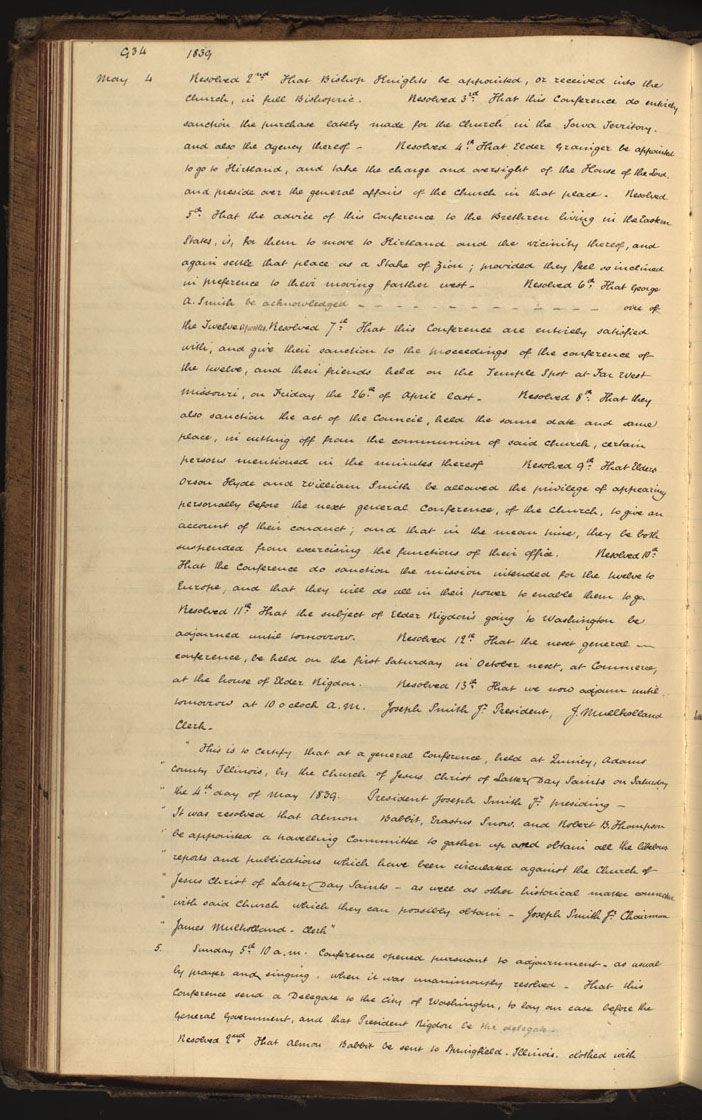 934 1839
May 4 Resolved 2nd That Bishop Knights be appointed, or received into the
Church, in full Bishopric. Resolved 3rd That this Conference do entirely
sanction the purchase lately made for the Church in the Iowa Territory.
and also the agency thereof - Resolved 4th That Elder Grainger be appointed
to go to Kirtland, and take the charge and oversight of the House of the Lord,
and preside over the general affairs of the Church in that place. Resolved
5th That the advice of this Conference to the Brethren living in the Eastern
States, is, for them to move to Kirtland and the vicinity thereof, and
again settle that place as a Stake of Zion; provided they feel so inclined
in preference to their moving farther west. Resolved 6th That George
A. Smith be acknowledged - - - - - - - - - - - one of
the Twelve Apostles. Resolved 7th That this Conference are entirely satisfied
with, and give their sanction to the proceedings of the conference of
the twelve, and their friends held on the Temple Spot at Far West
Missouri, on Friday the 26th of April last - Resolved 8th That they
also sanction the act of the Council, held the same date and same
place, in cutting off from the communion of said church, certain
persons mentioned in the minutes thereof Resolved 9th That Elders
Orson Hyde and William Smith be allowed the privilege of appearing
personally before the next general Conference, of the Church, to give an
account of their conduct; and that in the mean time, they be both
suspended from exercising the functions of their office. Resolved 10th
That the Conference do sanction the mission intended for the twelve to
Europe, and that they will do all in their power to enable them to go.
Resolved 11th That the subject of Elder Rigdon's going to Washington be
adjourned until tomorrow. Resolved 12th That the next general —
conference, be held on the first Saturday in October next, at Commerce,
at the house of Elder Rigdon. Resolved 13th That we now adjourn until
tomorrow at 10 o clock A.M. Joseph Smith Jr. President, J. Mullholland
Clerk.
" This is to certify that at a general Conference, held at Quincy, Adams
" County Illinois, by the Church of Jesus Christ of Latter Day Saints on Saturday
" the 4th day of May 1839. President Joseph Smith Jr. presiding -
" It was resolved that Almon Babbit, Erastus Snow, and Robert B. Thompson
" be appointed a travelling Committee to gather up and obtain all the libelous
" reports and publications which have been circulated against the Church of
" Jesus Christ of Latter Day Saints - as well as other historical matter connected
" with said Church which they can possibly obtain - Joseph Smith Jr. Chairman
" James Mulholland - Clerk"
5. Sunday 5th 10 a.m. Conference opened pursuant to adjournment - as usual
by prayer and singing. when it was unanimously resolved - That this
Conference send a Delegate to the City of Washington, to lay our case before the
General Government, and that President Rigdon be the delegate.
Resolved 2nd That Almon Babbit be sent to Springfield - Illinois. clothed with